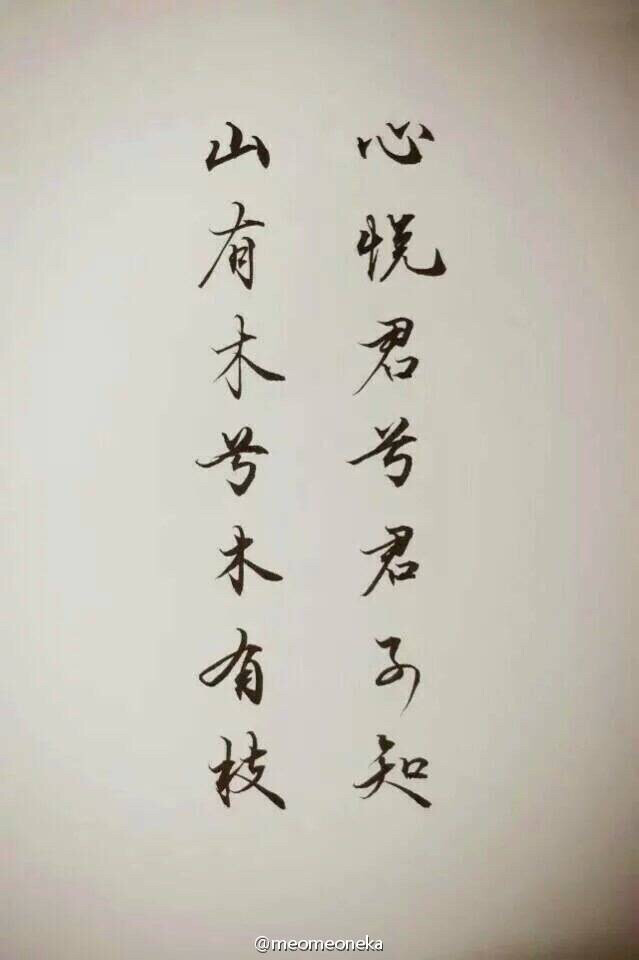 心悦君兮君子知
山有木兮木有枝
@meomeoneka